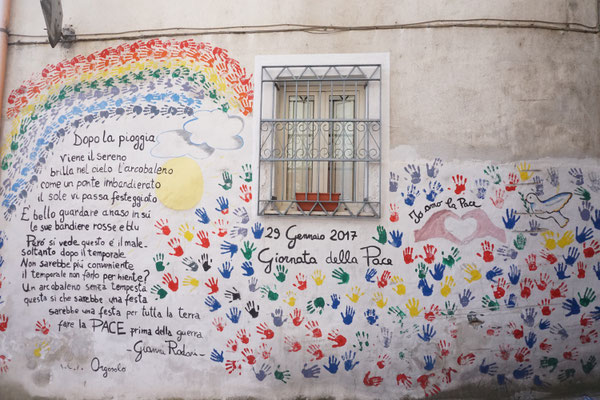 Dopo la pioggia
viene il sereno
brilla nel cielo l'arcobaleno
come un ponte imbandierato
il sole vi passa festeggiato
È bello guardare a naso in su
le sue bandiere rosse e blu
Però si vede, questo è il male
soltanto dopo il temporale.
Non sarebbe più conveniente
il temporale non farlo per niente?
Un arcobaleno senza tempesta
questa si che sarebbe una festa
sarebbe una festa per tutta la terra
fare la PACE prima della guerra
- Gianni Rodari -
Orgosolo
29 Gennaio 2017
Giornata della Pace
Io amo la Pace